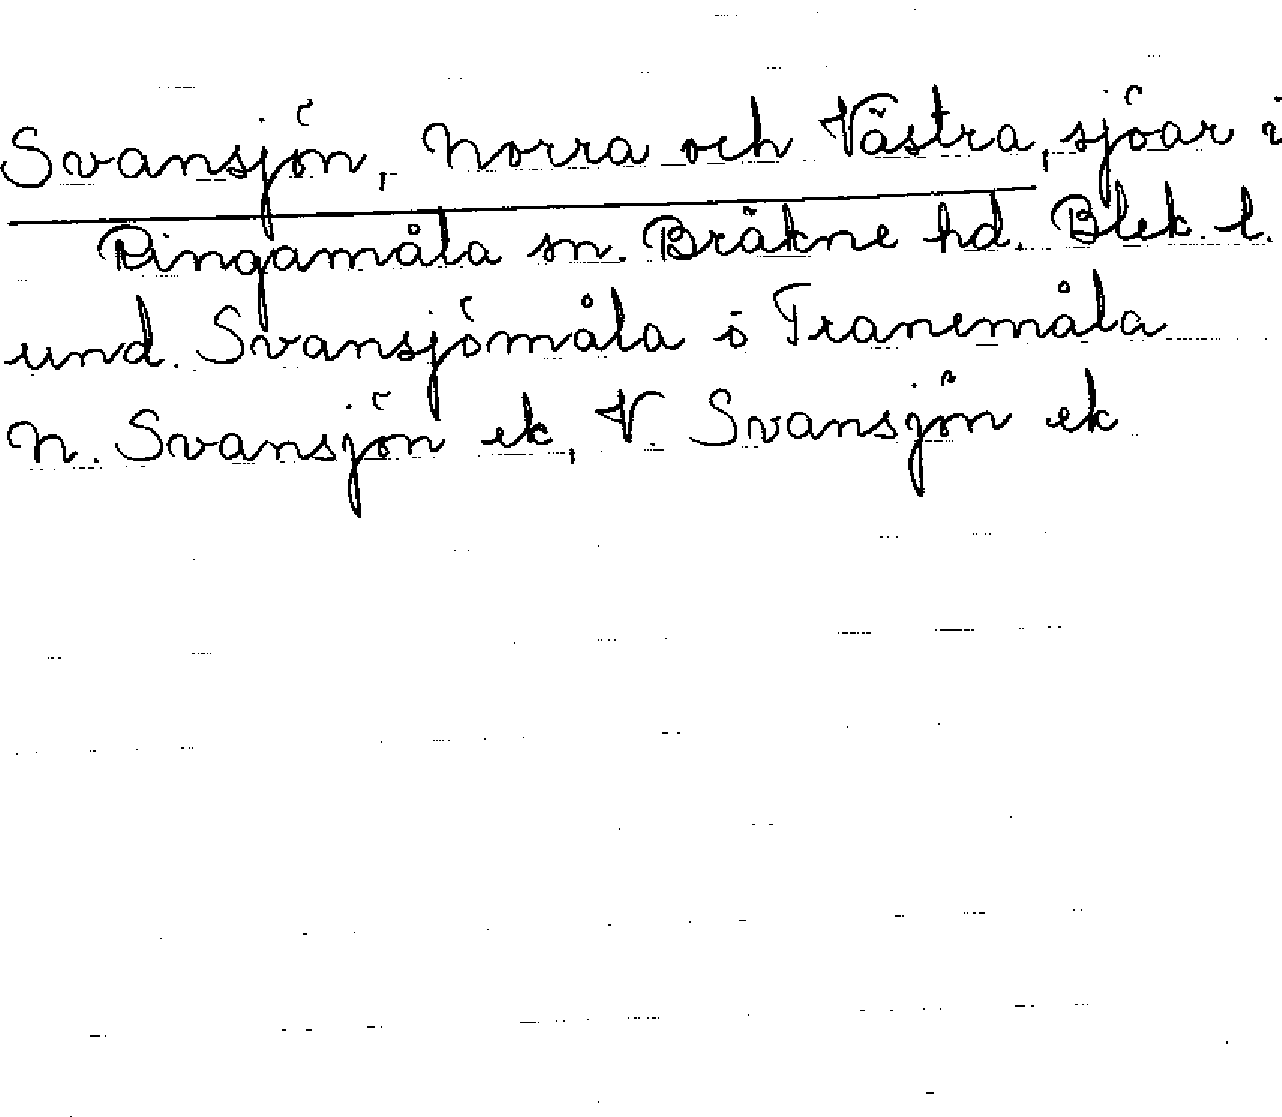 Svansjön, Norra och Västra, sjöar i
Ringamåla sn. Bräkne hd. Blek. l.
und. Svansjömåla o Tranemåla
N. Svansjön ek, V. Svansjön ek